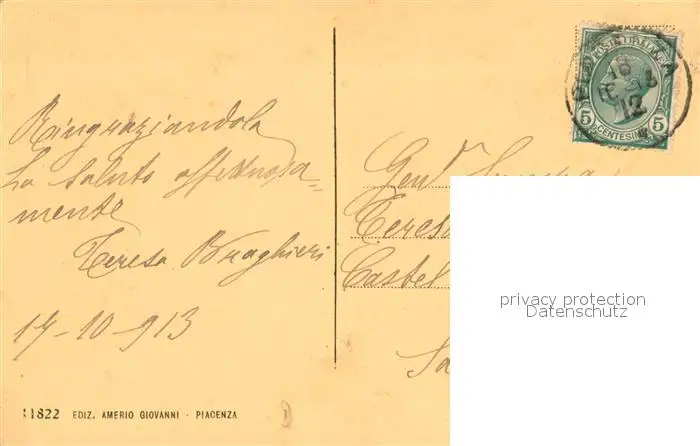 Ringraziandola
La saluto affettuosa=
mente
Teresa Braghieri
17-10-913
11822 EDIZ. AMERIO GIOVANNI - PIACENZA
POSTE ITALIANE
5 CENTESIMI 5
12
Gen.
Teresa
Castel
privacy protection
Datenschutz